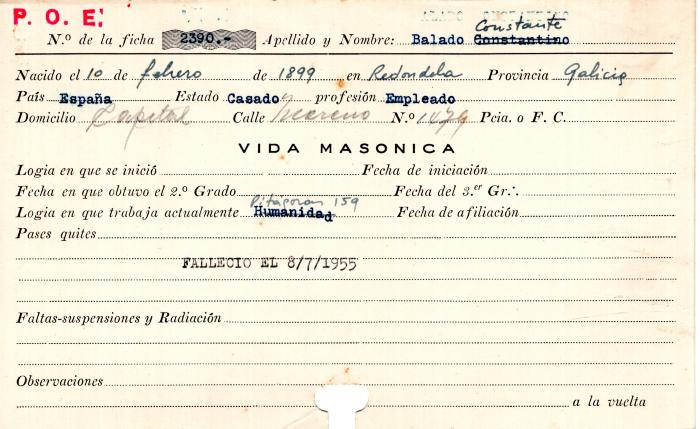 P. O. E.
Constante
N.º de la ficha 2390.- Apellido y Nombre: Balado Constantino
Nacido el 10 de febrero de 1899 en Redondela Provincia Galicia
País España Estado Casado profesión Empleado
Domicilio Capital Calle Moreno N.º 1479 Pcia. o F. C.
VIDA MASONICA
Logia en que se inició Fecha de iniciación
Fecha en que obtuvo el 2.º Grado Fecha del 3.er Gr∴
Pitágoras 159
Logia en que trabaja actualmente Humanidad Fecha de afiliación
Pases quites
FALLECIO EL 8/7/1955
Faltas-suspensiones y Radiación
Observaciones
a la vuelta